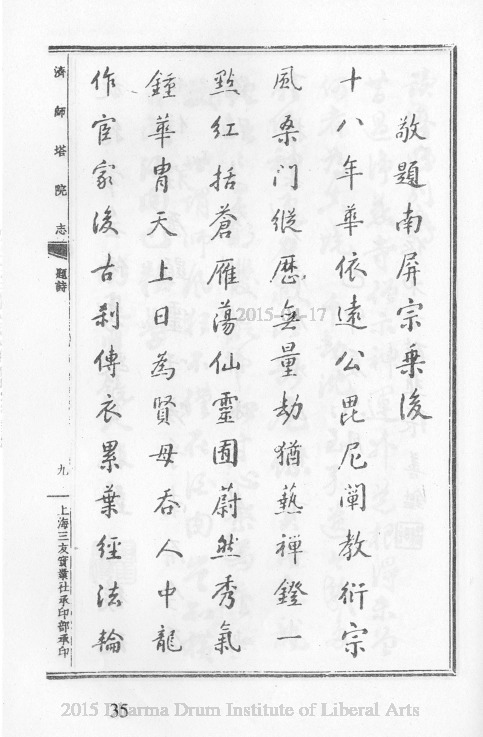 敬題南屏宗乘後
十八年華依遠公毘尼闡教衍宗
風桑門縱歷無量劫猶爇禪鐙一
點紅括蒼雁蕩仙靈囿蔚然秀氣
鍾華胄天上日為賢母吞人中龍
作宦家後古剎傳衣累葉經法輪
濟師塔院志
題詩
九
上海三友實業社承印部承印
35
2015 Dharma Drum Institute of Liberal Arts